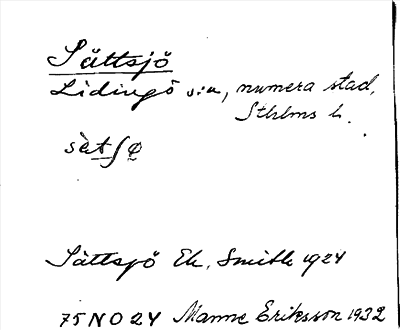 Sättsjö
Lidingö sn, numera stad,
Sthlms l.
sèt ʃø
Sättsjö Ek. Smith 1924
75 NO 24 Manne Eriksson 1932